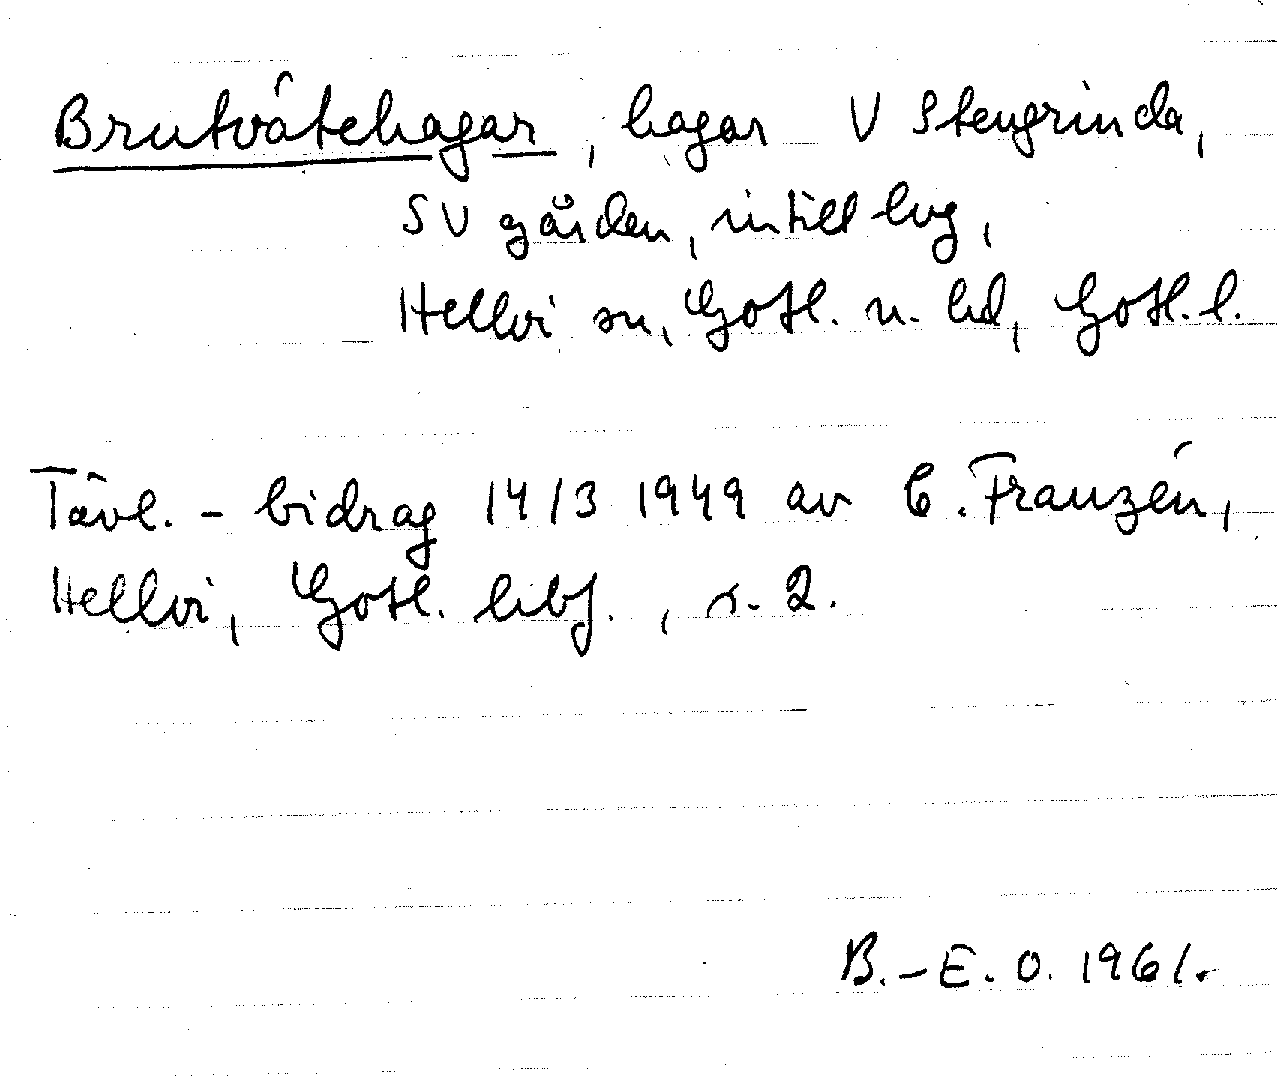 Brutvätehagar, hagar V Stengrinda,
SV gården, intill lvg,
Hellvi sn, Gotl. n. hd, Gotl. l.
Tävl. - bidrag 14/3 1949 av C. Franzén,
Hellvi, Gotl. hbf., s. 2.
B.-E. O. 1961.